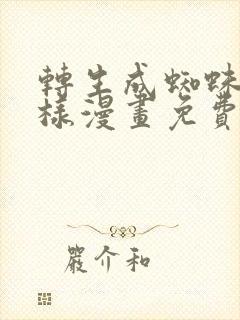 轉生成蜘蛛
樣漫畫免費
嚴介和